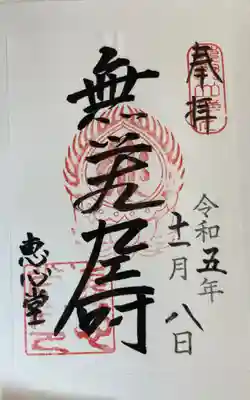 奉拝
令和五年
十一月八日
無量寿
恵心堂